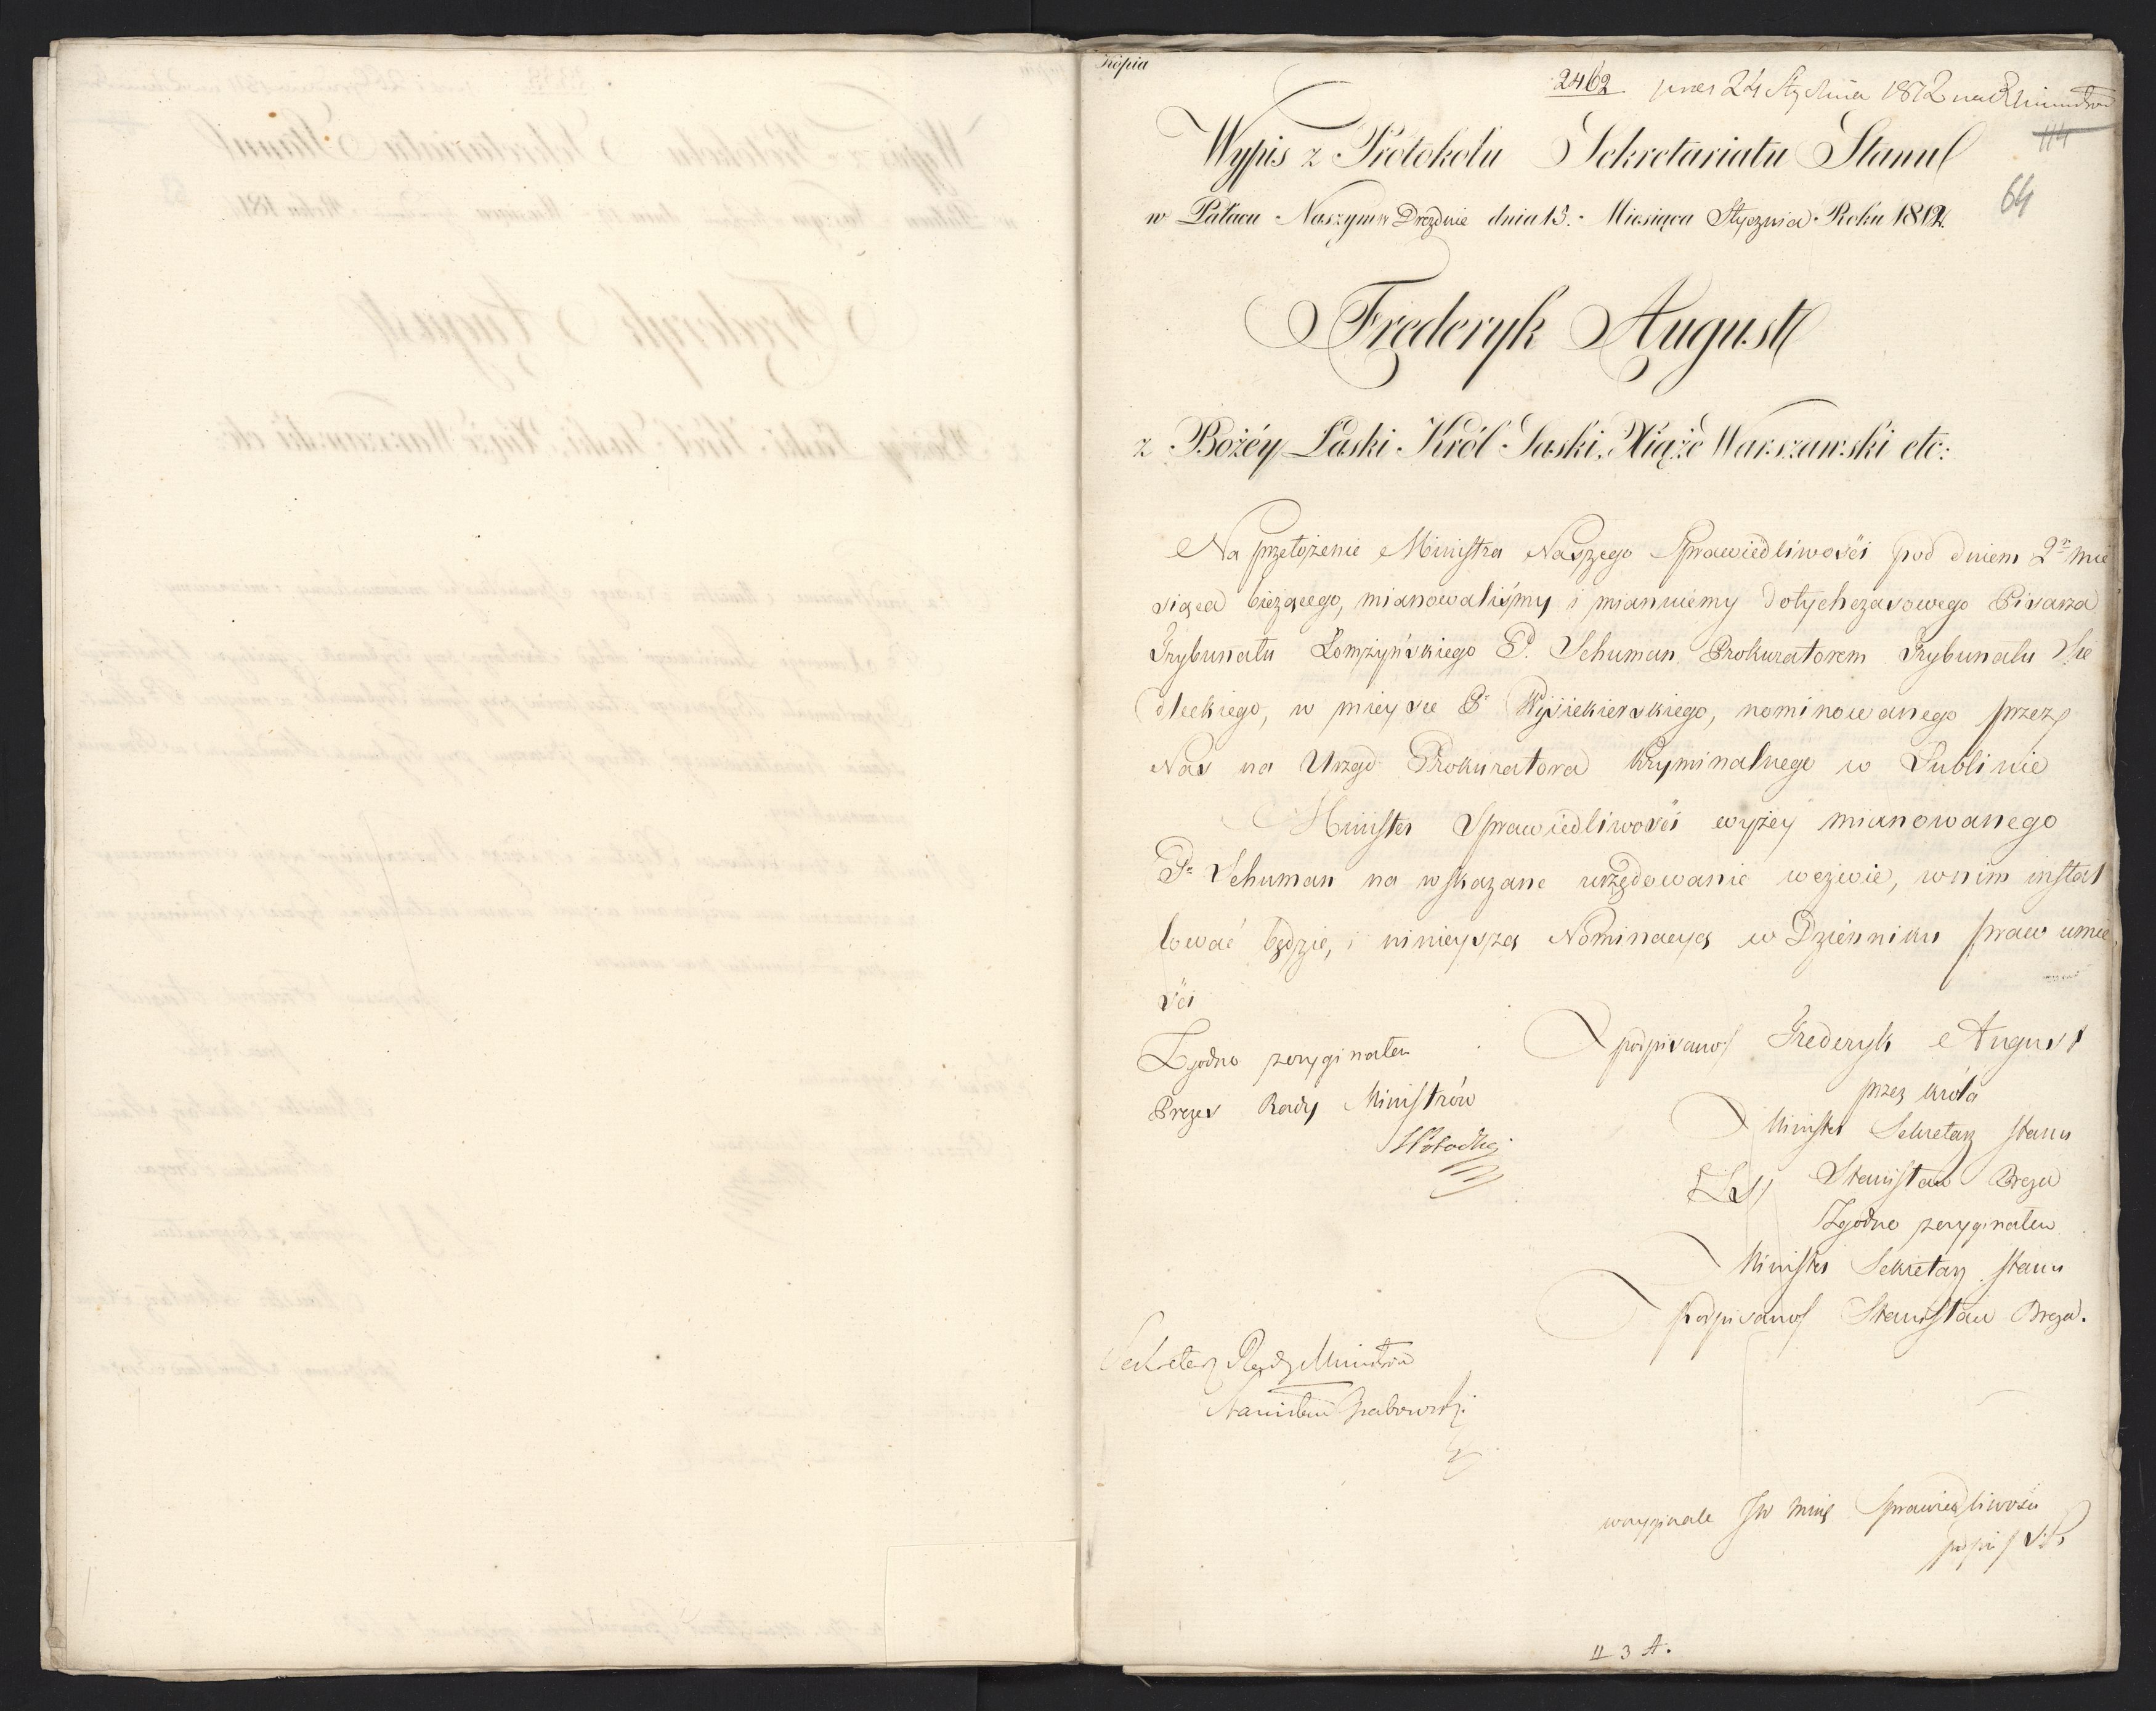 Kopia
2462 pres 24 Stycznia 1812 na R Ministrów
114
Wypis z Protokołu Sekretariatu Stanu
64
w Pałacu Naszym w Dreźnie dnia 13. Miesiąca Stycznia Roku 1812.
Frederyk August
z Bożéy Łaski Król Saski, Xiążę Warszawski etc:
Na przełożenie Ministra Naszego Sprawiedliwości pod dniem 2º mie
siąca bieżącego, mianowaliśmy i mianuiemy dotychczasowego Pisarza
Trybunału Łomżyńskiego P. Schuman Prokuratorem Trybunału Sie
dleckiego, w mieysce Pª Wysiekierskiego, nominowanego przez
Nas na Urząd Prokuratora Kryminalnego w Lublinie
Minister Sprawiedliwości wyżey mianowanego
Pª Schuman na wskazane urzędowanie wezwie, w nim instal
lować będzie, i ninieyszą Nominacyą w Dzienniku praw umie
ści
Zgodno zoryginałem
podpisano/ Frederyk August
Prezes Rady Ministrów
przez Króla
Minister Sekretarz Stanu
SPotocki
LS/ Stanisław Breza
Zgodno zoryginałem
Minister Sekretarz Stanu
podpisano/ Stanisław Breza.
Sekretarz Rady Ministrów
Stanisław Grabowski
woryginale JW Mins Sprawiedliwości
3 A.